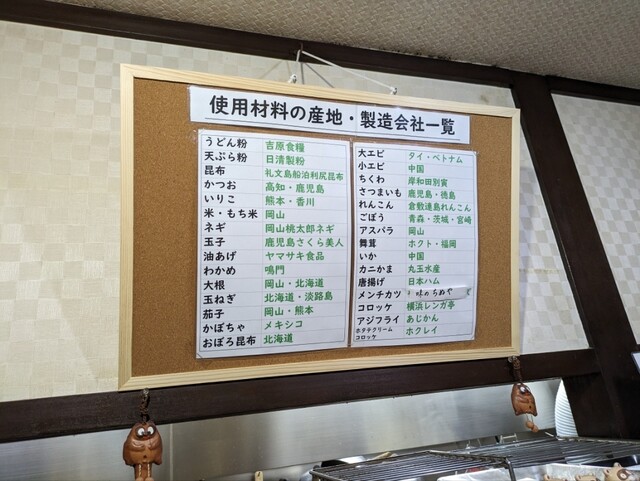 使用材料の産地・製造会社一覧
うどん粉 吉原食糧
天ぷら粉 日清製粉
昆布 礼文島船泊利尻昆布
かつお 高知・鹿児島
いりこ 熊本・香川
米・もち米 岡山
ネギ 岡山桃太郎ネギ
玉子 鹿児島さくら美人
油あげ ヤマサキ食品
わかめ 鳴門
大根 岡山・北海道
玉ねぎ 北海道・淡路島
茄子 岡山・熊本
かぼちゃ メキシコ
おぼろ昆布 北海道
大エビ タイ・ベトナム
小エビ 中国
ちくわ 岸和田別寅
さつまいも 鹿児島・徳島
れんこん 倉敷連島れんこん
ごぼう 青森・茨城・宮崎
アスパラ 岡山
舞茸 ホクト・福岡
いか 中国
カニかま 丸玉水産
唐揚げ 日本ハム
メンチカツ 味のちぬや
コロッケ 横浜レンガ亭
アジフライ あじかん
ホタテクリーム ホクレイ
コロッケ